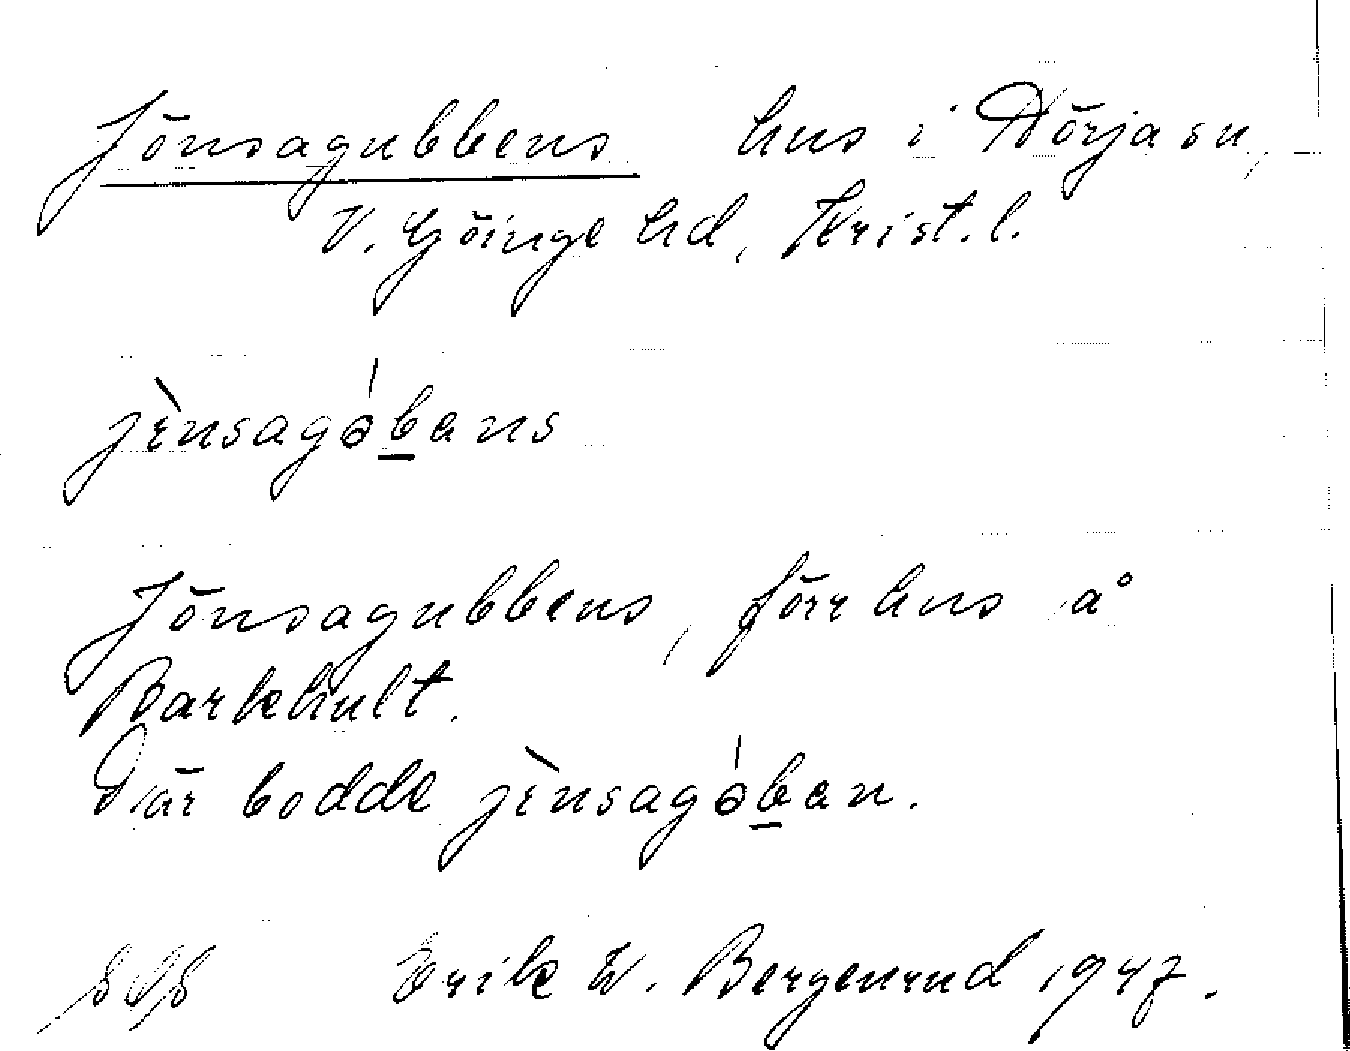 Jönsagubbens hus i Nörja sn,
V. Göinge hd, Krist. l.
jènsagəbans
Jönsagubbens, förr hus å
Barkhult.
Där bodde jènsagəban.
Erik W. Bergenrud 1947.